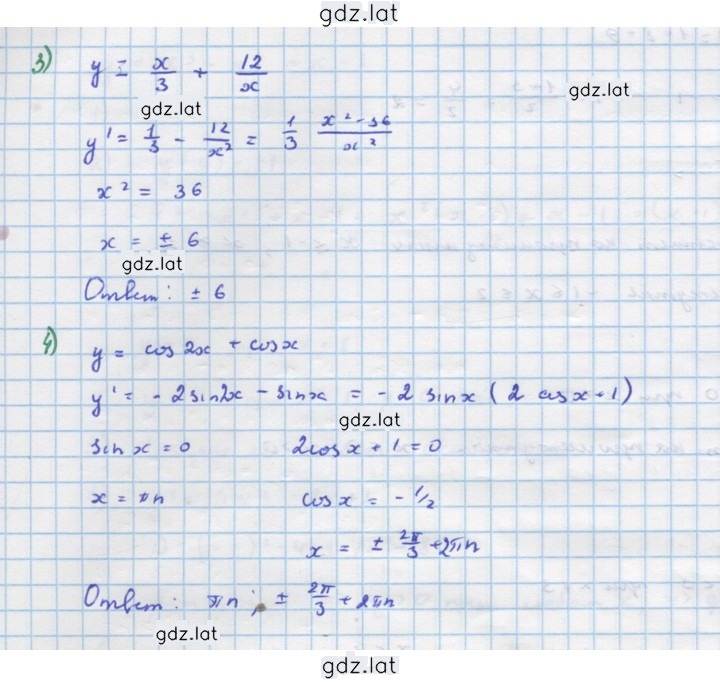 gdz.lat
3) y = x/3 + 12/x
gdz.lat
gdz.lat
y' = 1/3 - 12/x² = 1/3 x² - 36/x²
x² = 36
x = ± 6
gdz.lat
Ответ: ± 6
4) y = cos 2x + cos x
y' = - 2 sin 2x - sin x = - 2 sin x ( 2 cos x + 1 )
gdz.lat
sin x = 0 2 cos x + 1 = 0
x = πn cos x = - 1/2
x = ± 2π/3 + 2πn
Ответ: πn ; ± 2π/3 + 2πn
gdz.lat
gdz.lat